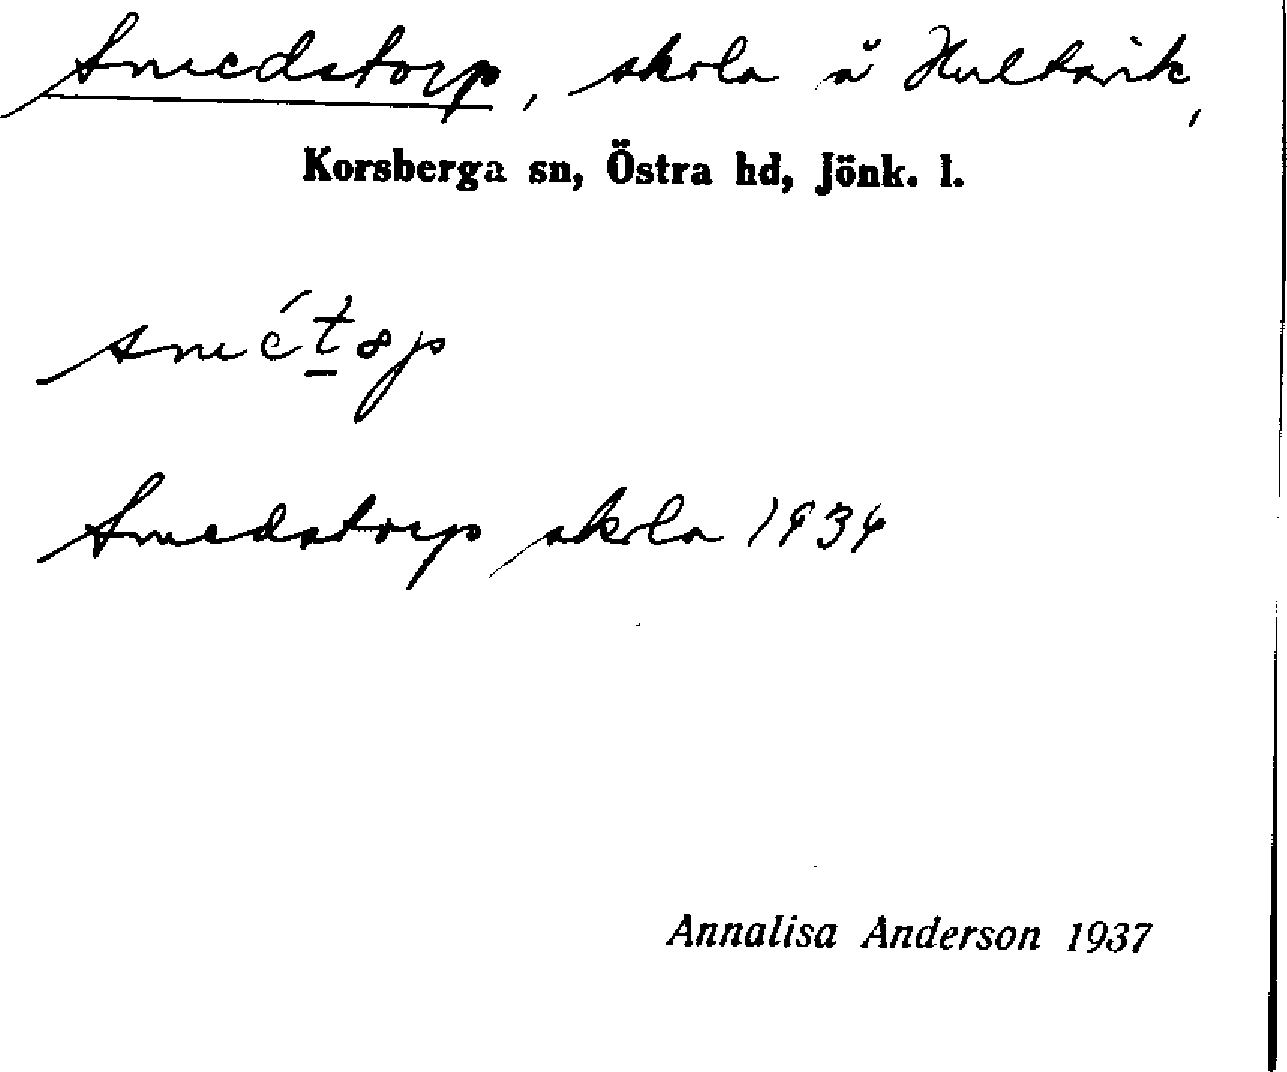 Smedstorp, skola å Hultsvik,
Korsberga sn, Östra hd, Jönk. l.
Smedstorp skola 1934
Annalisa Anderson 1937